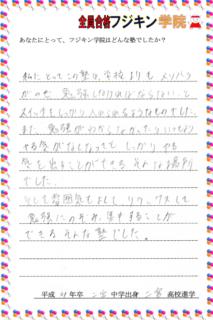 全員合格フジキン学院
あなたにとって、フジキン学院はどんな塾でしたか？
私にとってこの塾は、学校よりもメリハリ
がつき勉強しなければならない、と
スイッチをしっかり入れられるようなものでした。
また、勉強がわからなかったり
やる気がなくなっても しっかり やる
気を出すことができる そんな場所
でした。
そして雰囲気もよくて リラックスして
勉強にのぞみ、集中することが
できる そんな塾でした。
平成 年卒 二宮 中学出身 二宮 高校進学